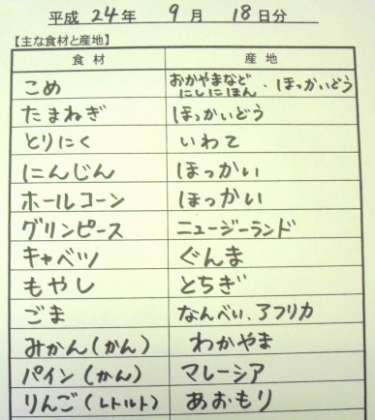 平成 24年 9月 18日分
【主な食材と産地】
食材 産地
こめ おかやまなど にしにほん・ほっかいどう
たまねぎ ほっかいどう
とりにく いわて
にんじん ほっかい
ホールコーン ほっかい
グリンピース ニュージーランド
キャベツ ぐんま
もやし とちぎ
ごま なんべい、アフリカ
みかん(かん) わかやま
パイン(かん) マレーシア
りんご(レトルト) あおもり